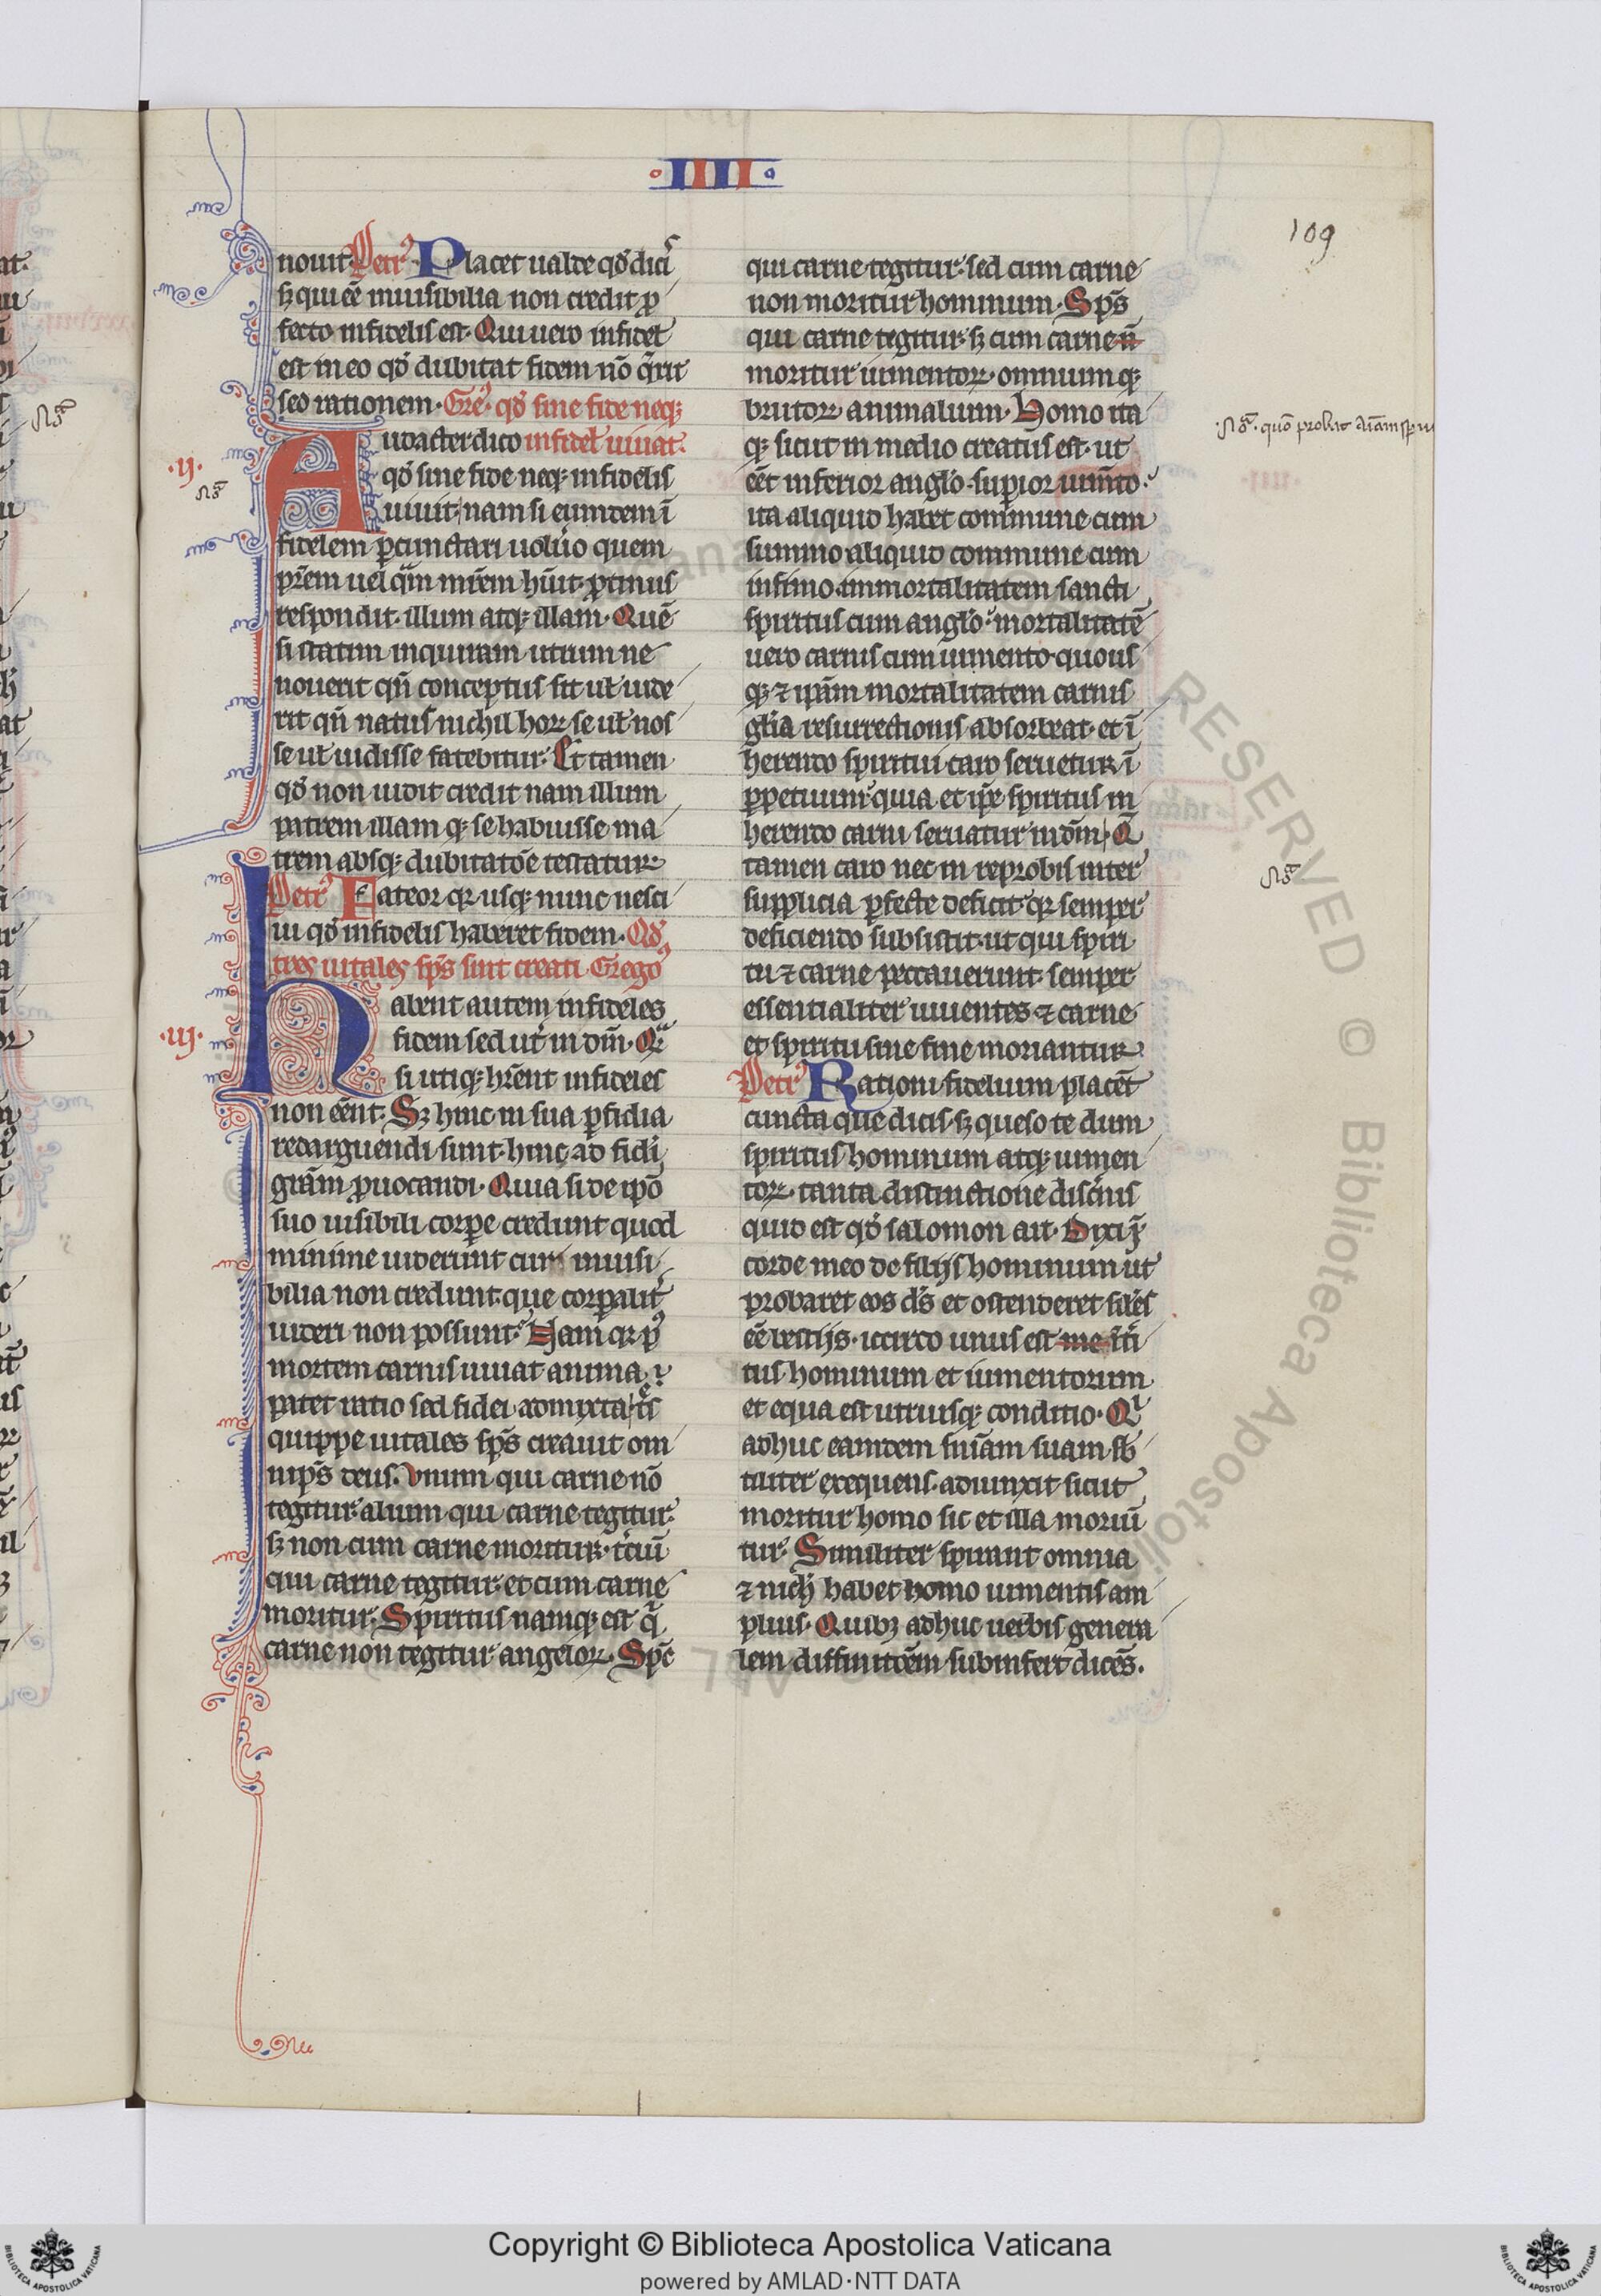 IIII
109
nouit Petrꝰ Placet ualde qđ dicͥſ
sꝫ qui eē inuisibilia non credit ꝓ
fecto infidelis est. Qui uero infidel̓
est in eo qđ dubitat fidem nō q̄rit
sed rationem. Greꝰ. qđ sine fide neqꝫ
Audacter dico infidel̓ uiuat.
qđ sine fide neqꝫ infidelis
uiuit nam si eumdem ī
fidelem ꝑcunctari uolu̓o quem
pr̄em uel q̄m mr̄em hūit. ꝓtinus
respondit. illum atqꝫ illam. Quē
si statim inquiram utrum ne
nouerit qn̄ conceptus sit ul̓ uide
rit qn̄ natus nichil hoꝝ se ul̓ nos
se ul̓ uidisse fatebitur. Et tamen
qđ non uidit credit nam illum
patrem illam qꝫ se habuisse ma
trem absqꝫ dubitatōe testatur
Petrꝰ Fateor qꝛ usqꝫ nunc nesci
ui qđ infidelis haberet fidem. Qđ
tres uitales sp̄s sint creati. Gregoꝰ
habent autem infideles
fidem sed ut̓ in dm̄. Qͣ
si utiqꝫ hr̄ent infideles
non eēnt. Sꝫ hinc in sua ꝑfidia
redarguendi sunt. hinc ad fidei
grām ꝓuocandi. Quia si de ipō
suo uisibili corꝑe credunt quod
minime uiderunt cur inuisi
bilia non credunt que corꝑalit̓
uideri non possunt. Nam qꝛ pꝰ
mortem carnis uiuat anima
patet ratio sed fidei admixta tͤs
quippe uitales sp̄s creauit om
nip̄s deus. Vnum qui carne nō
tegitur alium qui carne tegitur.
sꝫ non cum carne moritur. tͨciū
qui carne tegitur. et cum carne
moritur. Spiritus namqꝫ est q̄
carne non tegitur angeloꝝ. Sp̄c
qui carne tegitur. sed cum carne
non moritur hominum. Sp̄s
qui carne tegitur. sꝫ cum carne n̄
moritur iumentoꝝ. omnium qꝫ
brutoꝝ animalium. Homo ita
qꝫ sicut in medio creatus est. ut
eēt inferior anglo. suꝑior iumn̄to.
ita aliquid habet commune cum
summo aliquid commune cum
infimo. immortalitatem sancti
spiritus cum anglo. mortalitatē
uero carnis cum iumento quous
qꝫ ⁊ ipām mortalitatem carnis
glīa resurrectionis absorbeat. et ī
herendo spiritui caro seruetur ī
ꝑpetuum. quia et ip̄e spiritus in
herendo carni seruatur in dm̄. Q̄
tamen caro nec in reprobis inter
supplicia ꝑfecte deficit qꝛ semper
deficiendo subsistit. ut qui spiri
tu ⁊ carne peccauerunt. semper
essentialiter uiuentes ⁊ carne
et spiritu sine fine moriantur
Petrꝰ Rationi fidelium placēt
cuncta que dicis. sꝫ queso te dum
spiritus hominum atqꝫ iumen
toꝝ. tanta distinctione discͥnis
quid est qđ salomon ait. Dixi ī
corde meo de filijs hominum ut
probaret eos ds̄ et ostenderet sil̓es
eē bestijs. idcirco unus est
tus hominum et iumentorum
et equa est utriusqꝫ conditio. Qͥ
adhuc eamdem sn̄iam suam sb̓
tiliter exequens. adiunxit sicut
moritur homo sic et illa moriū
tur. Similiter spirant omnia
⁊ nich̓ habet homo iumentis am
plius. Quibꝫ adhuc uerbis genera
lem diffinitōem subinfert dicēs.
.ij.
.iij.
Copyright © Biblioteca Apostolica Vaticana
powered by AMLAD·NTT DATA